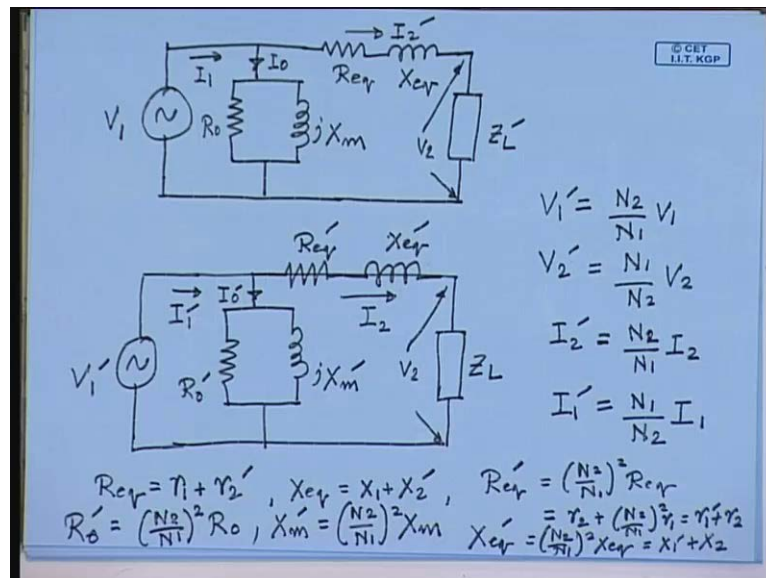 I2′
© CET
I.I.T. KGP
I1
I0
Req
Xeq
V1
R0
jXm
V2
ZL′
V1′ = N2/N1 V1
V2′ = N1/N2 V2
I2′ = N2/N1 I2
I1′ = N1/N2 I1
Req′
Xeq′
I1′
I0′
I2
V1′
R0′
jXm′
V2
ZL
Req = r1 + r2′ , Xeq = X1 + X2′ , Req′ = (N2/N1)² Req
= r2 + (N2/N1)² r1 = r1′ + r2
R0′ = (N2/N1)² R0 , Xm′ = (N2/N1)² Xm
Xeq′ = (N2/N1)² Xeq = X1′ + X2